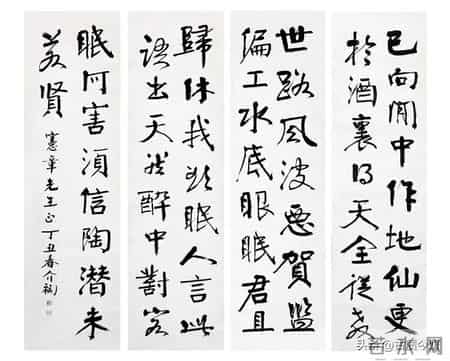 已向閒中作地仙更
於酒裏得天全從教
世路風波惡賀監
偏工水底眼眠君且
歸休我欲眠人言此
語出天然醉中對客
眠何害須信陶潛未
若賢
憲章先生正 丁丑春介